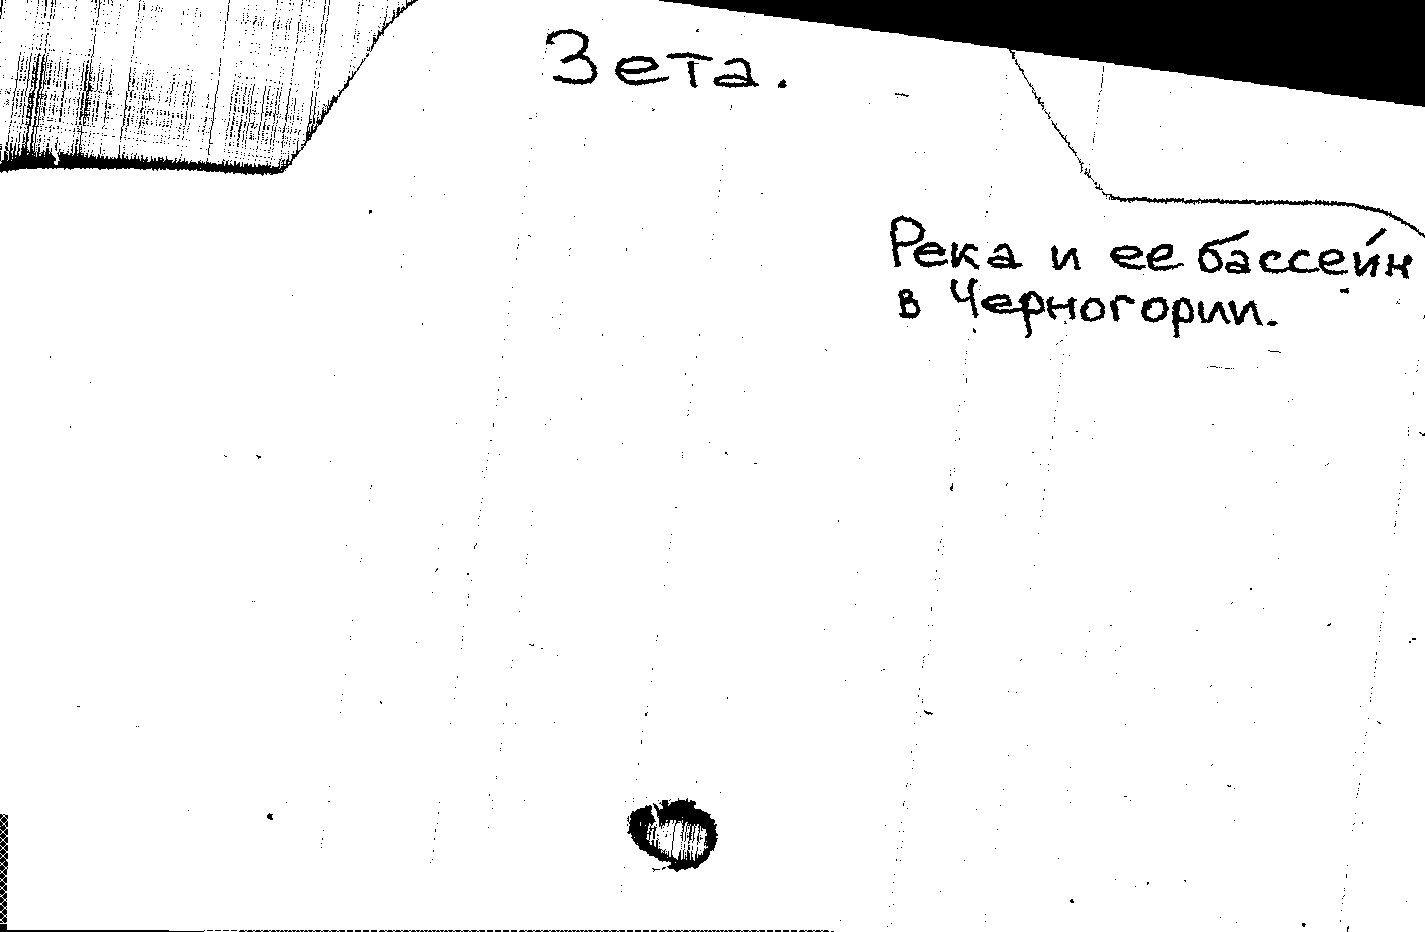 Зета.
Река и ее бассейн
в Черногории.